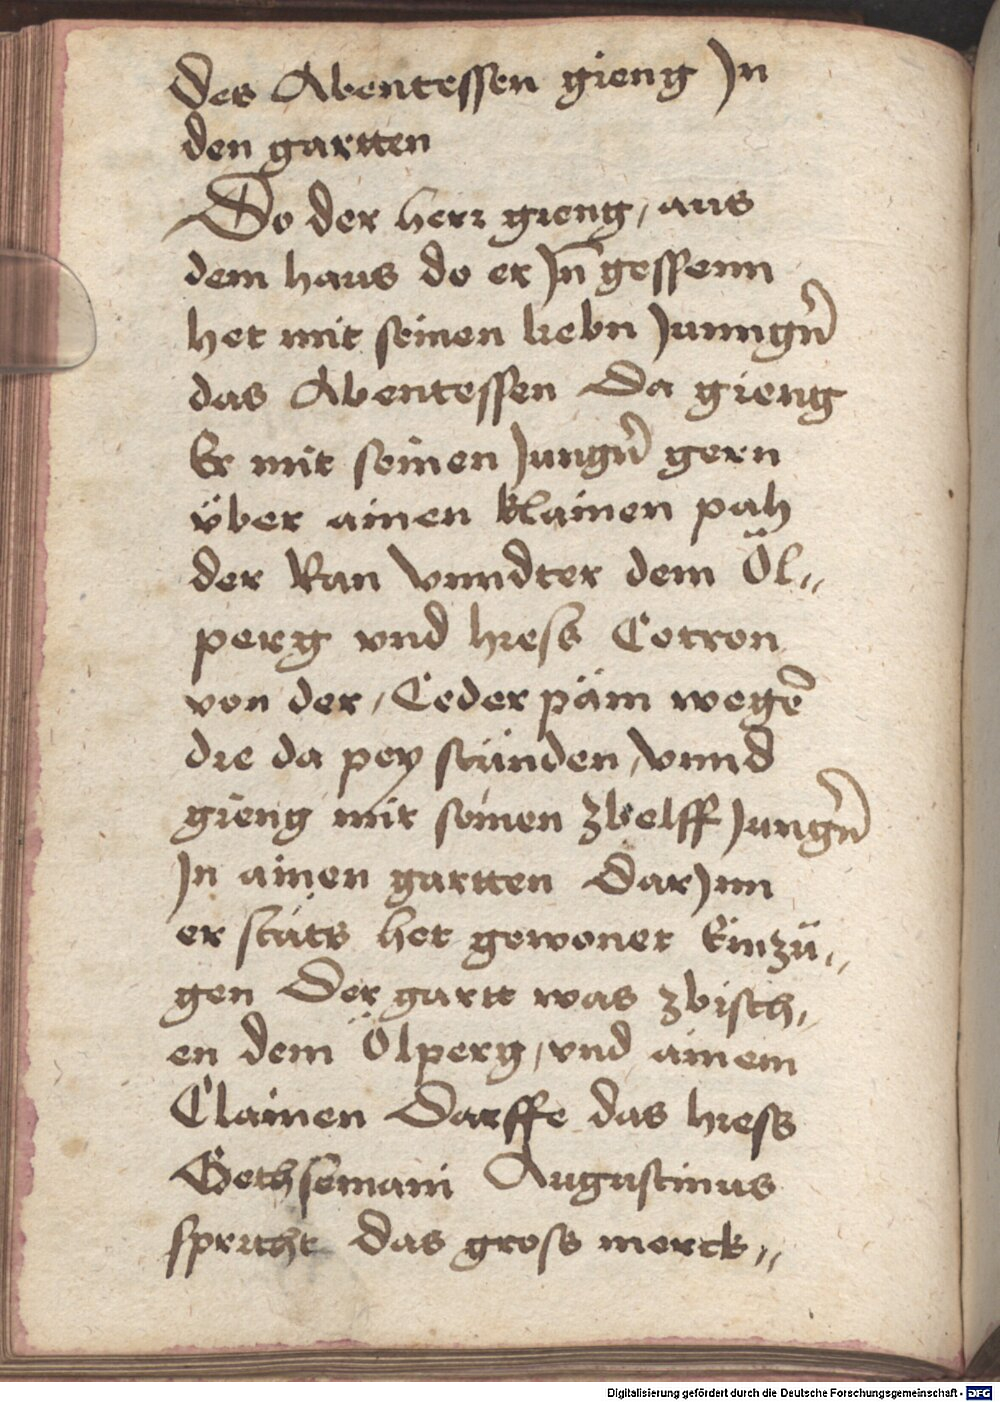 des Abentessen gieng Jn
den gartten
Do der herr gieng, aus
dem haus do er Jn̄ gessenn
het mit seinen liebn Junngn̄
das Abentessen Da gieng
Er mit seinen Jungn̄ gern
über ainen klainen pah
der Ran vnndter dem Öl„
perg vnd hiess Cotron
von der, Ceder päm wegē
die da pey stünden, vnnd
gieng mit seinen zbelff Jungn̄
Jn ainen gartten darJnn
er stäts het gewonet Einzü„
gen Der gartt was zbisch,
en dem Ölperg, vnd ainem
Clainen Darffe das hiess
Gethsemani Augustinus
spricht das gross merck„
Digitalisierung gefördert durch die Deutsche Forschungsgemeinschaft - DFG